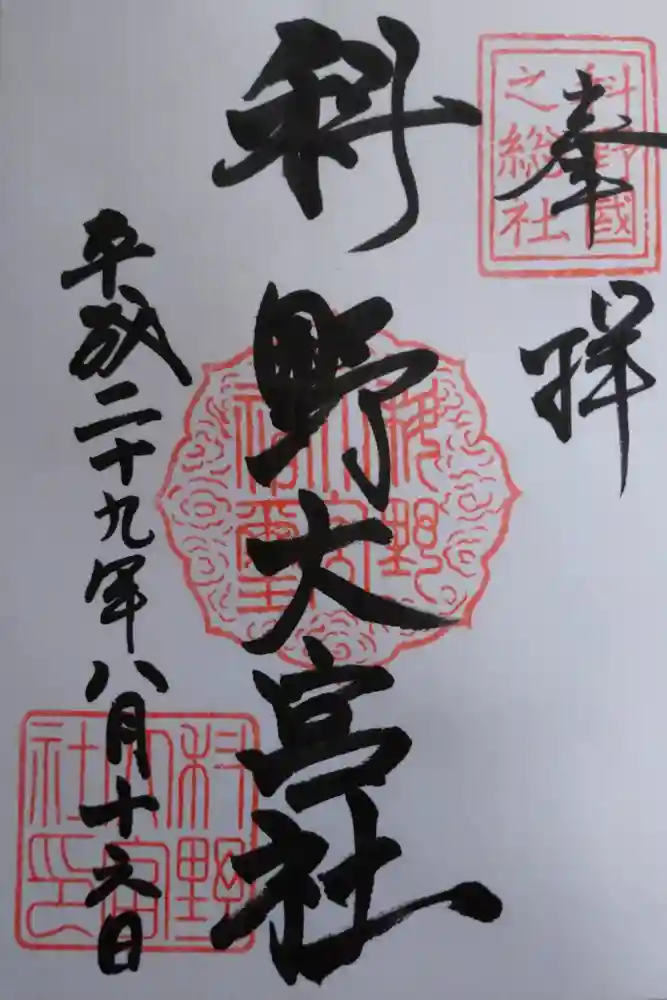 奉拝
科野國之総社
科野大宮社
科野大宮社璽
平成二十九年八月十六日
科野大宮社印